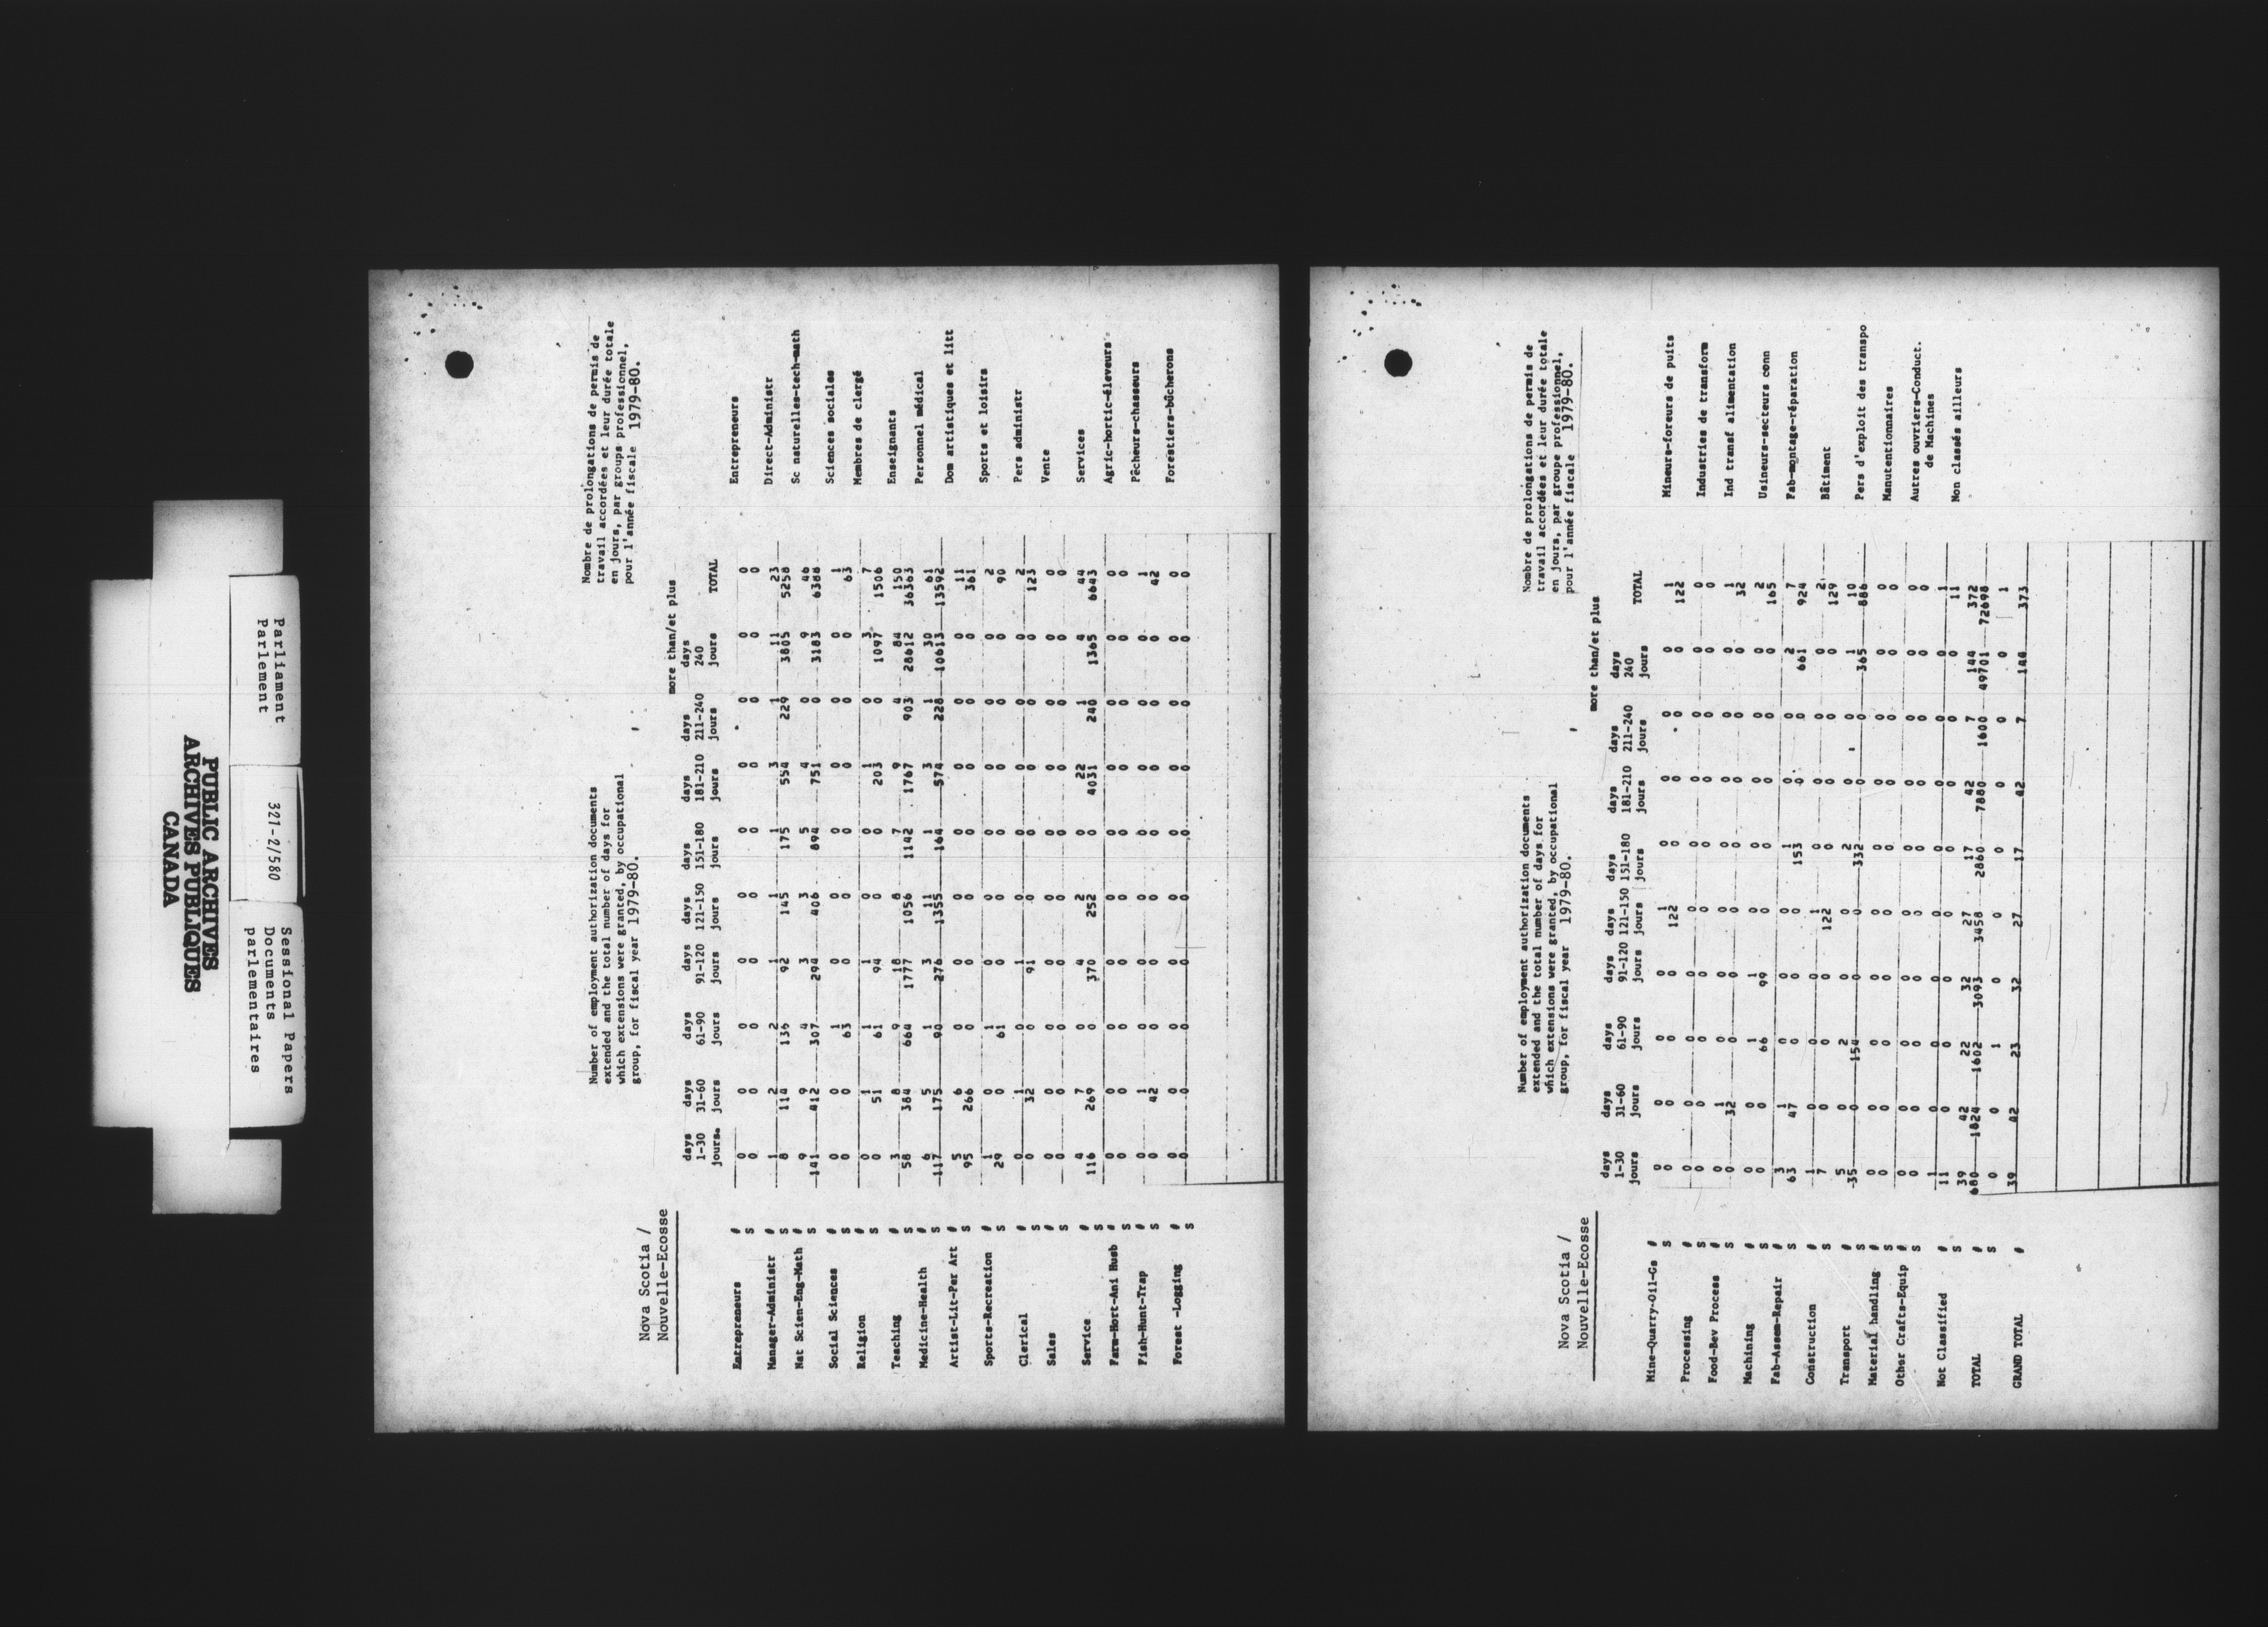 PUBLIC ARCHIVES
ARCHIVES PUBLIQUES
CANADA
Parliament
Parlement
321-2/580
Sessional Papers
Documents
parlementaires
Nova Scotia /
Nouvelle-Ecosse
Number of employment authorization documents
extended and the total number of days for
which extensions were granted, by occupational
group, for fiscal year 1979-80.
Nombre de prolongations de permis de
travail accordées et leur durée totale
en jours, par groups professionnel,
pour l'année fiscale 1979-80.
more than/et plus
days days days days days days days days
1-30 31-60 61-90 91-120 121-150 151-180 181-210 211-240 240 TOTAL
jours jours jours jours jours jours jours jours jours
Entrepreneurs # 0 0 0 0 0 0 0 0 0 0 Entrepreneurs
S 0 0 0 0 0 0 0 0 0 0
Manager-Administr # 1 2 2 1 1 1 3 1 11 23 Direct-Administr
S 8 114 136 92 145 175 554 229 3805 5258
Nat Scien-Eng-Math # 9 9 4 3 3 5 4 0 9 46 Sc naturelles-tech-math
S 141 412 307 294 406 894 751 0 3183 6388
Social Sciences # 0 0 1 0 0 0 0 0 0 1 Sciences sociales
S 0 0 63 0 0 0 0 0 0 63
Religion # 0 1 1 1 0 0 1 0 3 7 Membres de clergé
S 0 51 61 94 0 0 203 0 1097 1506
Teaching # 3 8 9 18 8 7 9 4 84 150 Enseignants
S 58 384 664 1777 1056 1142 1767 903 28612 36363
Medicine-Health # 6 5 1 3 11 1 3 1 30 61 Personnel médical
S 117 175 90 276 1355 164 574 228 10613 13592
Artist-Lit-Per Art # 5 6 0 0 0 0 0 0 0 11 Dom artistiques et litt
S 95 266 0 0 0 0 0 0 0 361
Sports-Recreation # 1 0 1 0 0 0 0 0 0 2 Sports et loisirs
S 29 0 61 0 0 0 0 0 0 90
Clerical # 0 1 0 1 0 0 0 0 0 2 Pers administr
S 0 32 0 91 0 0 0 0 0 123
Sales # 0 0 0 0 0 0 0 0 0 0 Vente
S 0 0 0 0 0 0 0 0 0 0
Service # 4 7 0 4 2 0 22 1 4 44 Services
S 116 269 0 370 252 0 4031 240 1365 6643
Farm-Hort-Ani Husb # 0 0 0 0 0 0 0 0 0 0 Agric-hortic-éleveurs
S 0 0 0 0 0 0 0 0 0 0
Fish-Hunt-Trap # 0 1 0 0 0 0 0 0 0 1 Pêcheurs-chasseurs
S 0 42 0 0 0 0 0 0 0 42
Forest -Logging # 0 0 0 0 0 0 0 0 0 0 Forestiers-bûcherons
S 0 0 0 0 0 0 0 0 0 0
Nova Scotia /
Nouvelle-Ecosse
Number of employment authorization documents
extended and the total number of days for
which extensions were granted, by occupational
group, for fiscal year 1979-80.
Nombre de prolongations de permis de
travail accordées et leur durée totale
en jours, par groupe professionnel,
pour l'année fiscale 1979-80.
more than/et plus
days days days days days days days days days
1-30 31-60 61-90 91-120 121-150 151-180 181-210 211-240 240 TOTAL
jours jours jours jours jours jours jours jours jours
Mine-Quarry-Oil-Gs # 0 0 0 0 1 0 0 0 0 1 Mineurs-foreurs de puits
S 0 0 0 0 122 0 0 0 0 122
Processing # 0 0 0 0 0 0 0 0 0 0 Industries de transform
S 0 0 0 0 0 0 0 0 0 0
Food-Bev Process # 0 1 0 0 0 0 0 0 0 1 Ind transf alimentation
S 0 32 0 0 0 0 0 0 0 32
Machining # 0 0 1 1 0 0 0 0 0 2 Usineurs-secteurs conn
S 0 0 66 99 0 0 0 0 0 165
Fab-Assem-Repair # 3 1 0 0 0 1 0 0 2 7 Fab-montage-réparation
S 63 47 0 0 0 153 0 0 661 924
Construction # 1 0 0 0 1 0 0 0 0 2 Bâtiment
S 7 0 0 0 122 0 0 0 0 129
Transport # 5 0 2 0 0 2 0 0 1 10 Pers d'exploit des transpo
S 35 0 154 0 0 332 0 0 365 886
Material handling # 0 0 0 0 0 0 0 0 0 0 Manutentionnaires
S 0 0 0 0 0 0 0 0 0 0
Other Crafts-Equip # 0 0 0 0 0 0 0 0 0 0 Autres ouvriers-Conduct.
S 0 0 0 0 0 0 0 0 0 0 de Machines
Not Classified # 1 0 0 0 0 0 0 0 0 1 Non classés ailleurs
S 11 0 0 0 0 0 0 0 0 11
TOTAL # 39 42 22 32 27 17 42 7 144 372
S 680 1824 1602 3093 3458 2860 7880 1600 49701 72698
0 0 1 0 0 0 0 0 0 1
GRAND TOTAL # 39 42 23 32 27 17 42 7 144 373